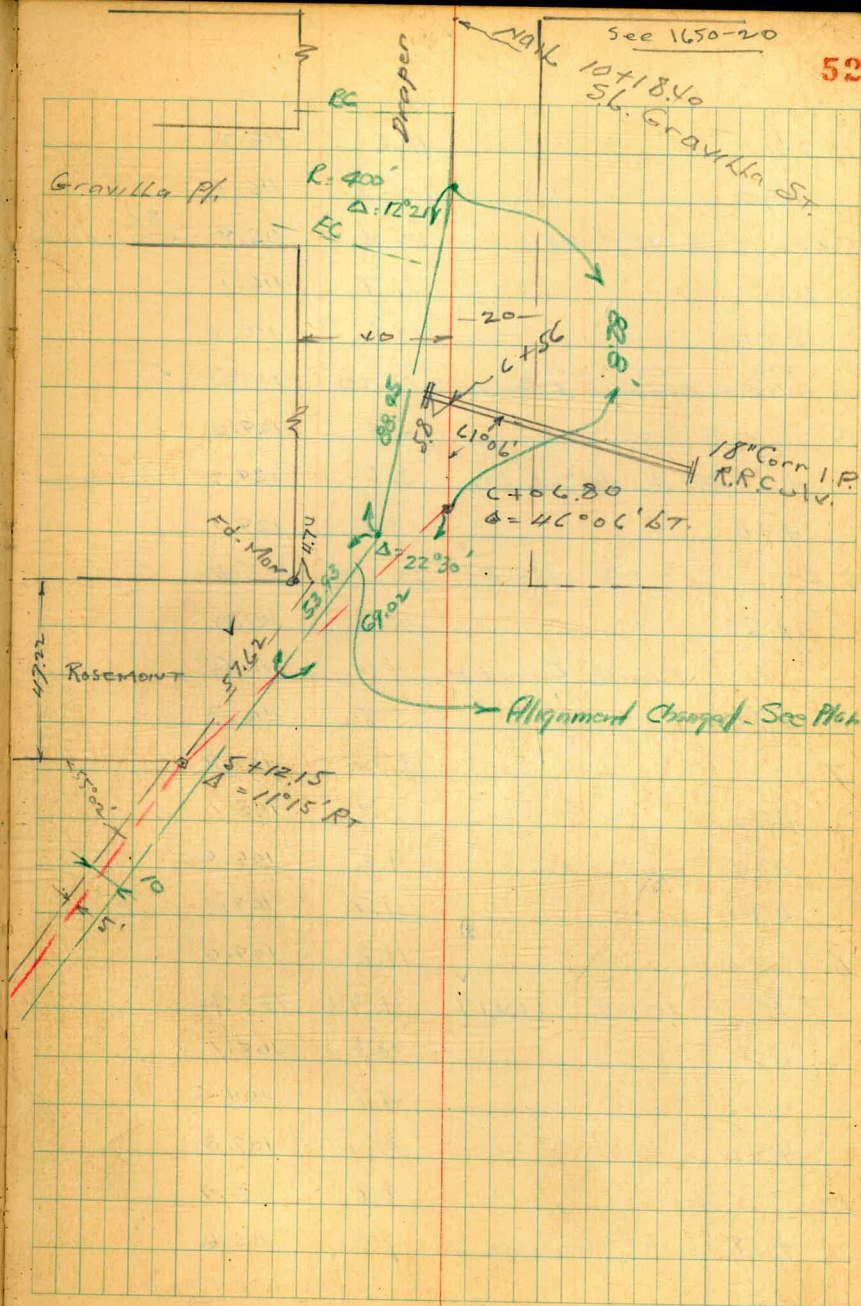 See 1650-20
52
Nail
10+18.40
S.L. Gravilla St.
Draper
BC
Gravilla Pl.
R=400'
Δ=12°21'
EC
40
20
6+56
82.8'
88.95
5.8
61°06'
18" Corr. I.P.
R.R. Culv.
6+06.80
Δ=46°06' LT.
Fd. Mon
4.74
Δ=
22°30'
53.93
69.02
49.22
ROSEMONT
57.62
Alignment Changed - See Plan
5+12.15
Δ
=11°15' RT
55°02'
10
5'